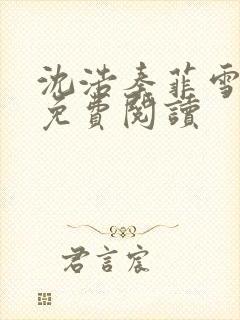 沈浩秦菲雪
免費閱讀
君言宸